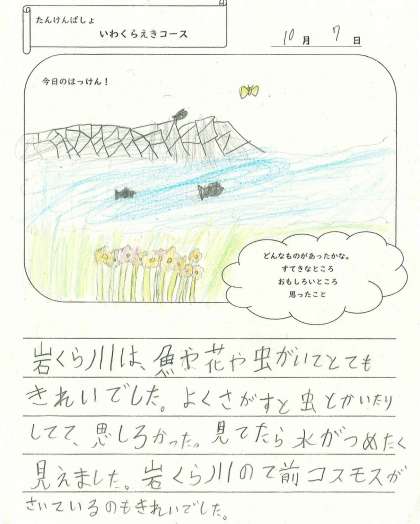 たんけんばしょ
いわくらえきコース
10月7日
今日のはっけん！
どんなものがあったかな。
すてきなところ
おもしろいところ
思ったこと
岩くら川は、魚や花や虫がいてとても
きれいでした。よくさがすと虫とかいたり
してて、思しろかった。見てたら水がつめたく
見えました。岩くら川ので前コスモスが
さいているのもきれいでした。